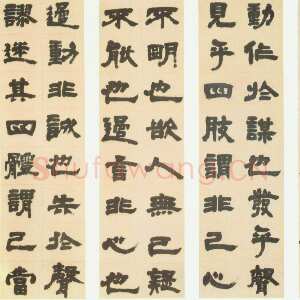 動作於謀也發乎聲
見乎四肢謂非己心
不明也欲人無己疑
不能也過言非心也
過動非誠也失於聲
謬迷其四體謂己當
Shufawang.CN